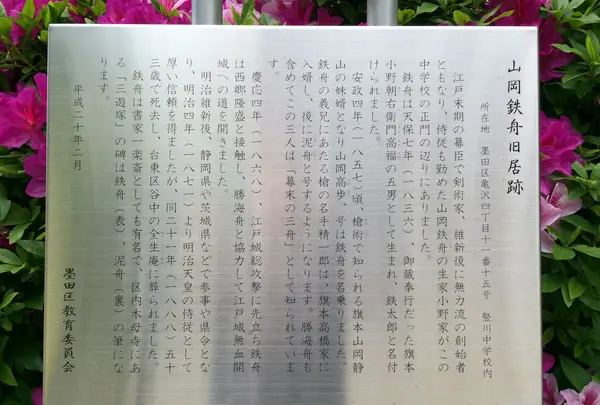 山岡鉄舟旧居跡
所在地　墨田区亀沢四丁目十一番十五号　竪川中学校内
江戸末期の幕臣で剣術家、維新後に無刀流の創始者
ともなり、侍従も勤めた山岡鉄舟の生家小野家がこの
中学校の正門の辺りにありました。
鉄舟は天保七年（一八三六）、御蔵奉行だった旗本
小野朝右衛門高福の五男として生まれ、鉄太郎と名付
けられました。
安政四年（一八五七）頃、槍術で知られる旗本山岡静
山の妹婿となり山岡高歩、号は鉄舟を名乗りました。
鉄舟の義兄にあたる槍の名手精一郎は、旗本高橋家に
入婿し、後に泥舟と号するようになります。勝海舟も
含めてこの三人は「幕末の三舟」として知られていま
す。
慶応四年（一八六八）、江戸城総攻撃に先立ち鉄舟
は西郷隆盛と接触し、勝海舟と協力して江戸城無血開
城への道を開きました。
明治維新後、静岡県や茨城県などで参事や県令とな
り、明治四年（一八七一）より明治天皇の侍従として
厚い信頼を得ましたが、同二十一年（一八八八）五十
三歳で死去し、台東区谷中の全生庵に葬られました。
鉄舟は書家一楽斎としても有名で、区内木母寺にあ
る「三遊塚」の碑は鉄舟（表）、泥舟（裏）の筆にな
ります。
平成二十年二月
墨田区教育委員会